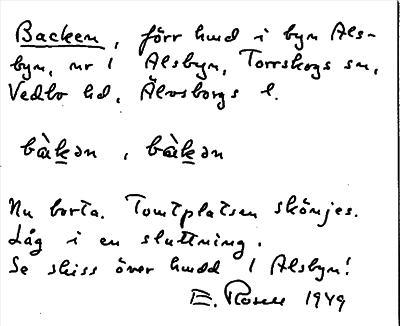 Backen, förr hmd i byn Als-
byn, nr 1 Alsbyn, Torrskogs sn,
Vedbo hd, Älvsborgs l.
bàkən, bàkən
Nu borta. Tomtplatsen skönjes.
Låg i en sluttning.
Se skiss över hmdd 1 Alsbyn!
E. Rosell 1949